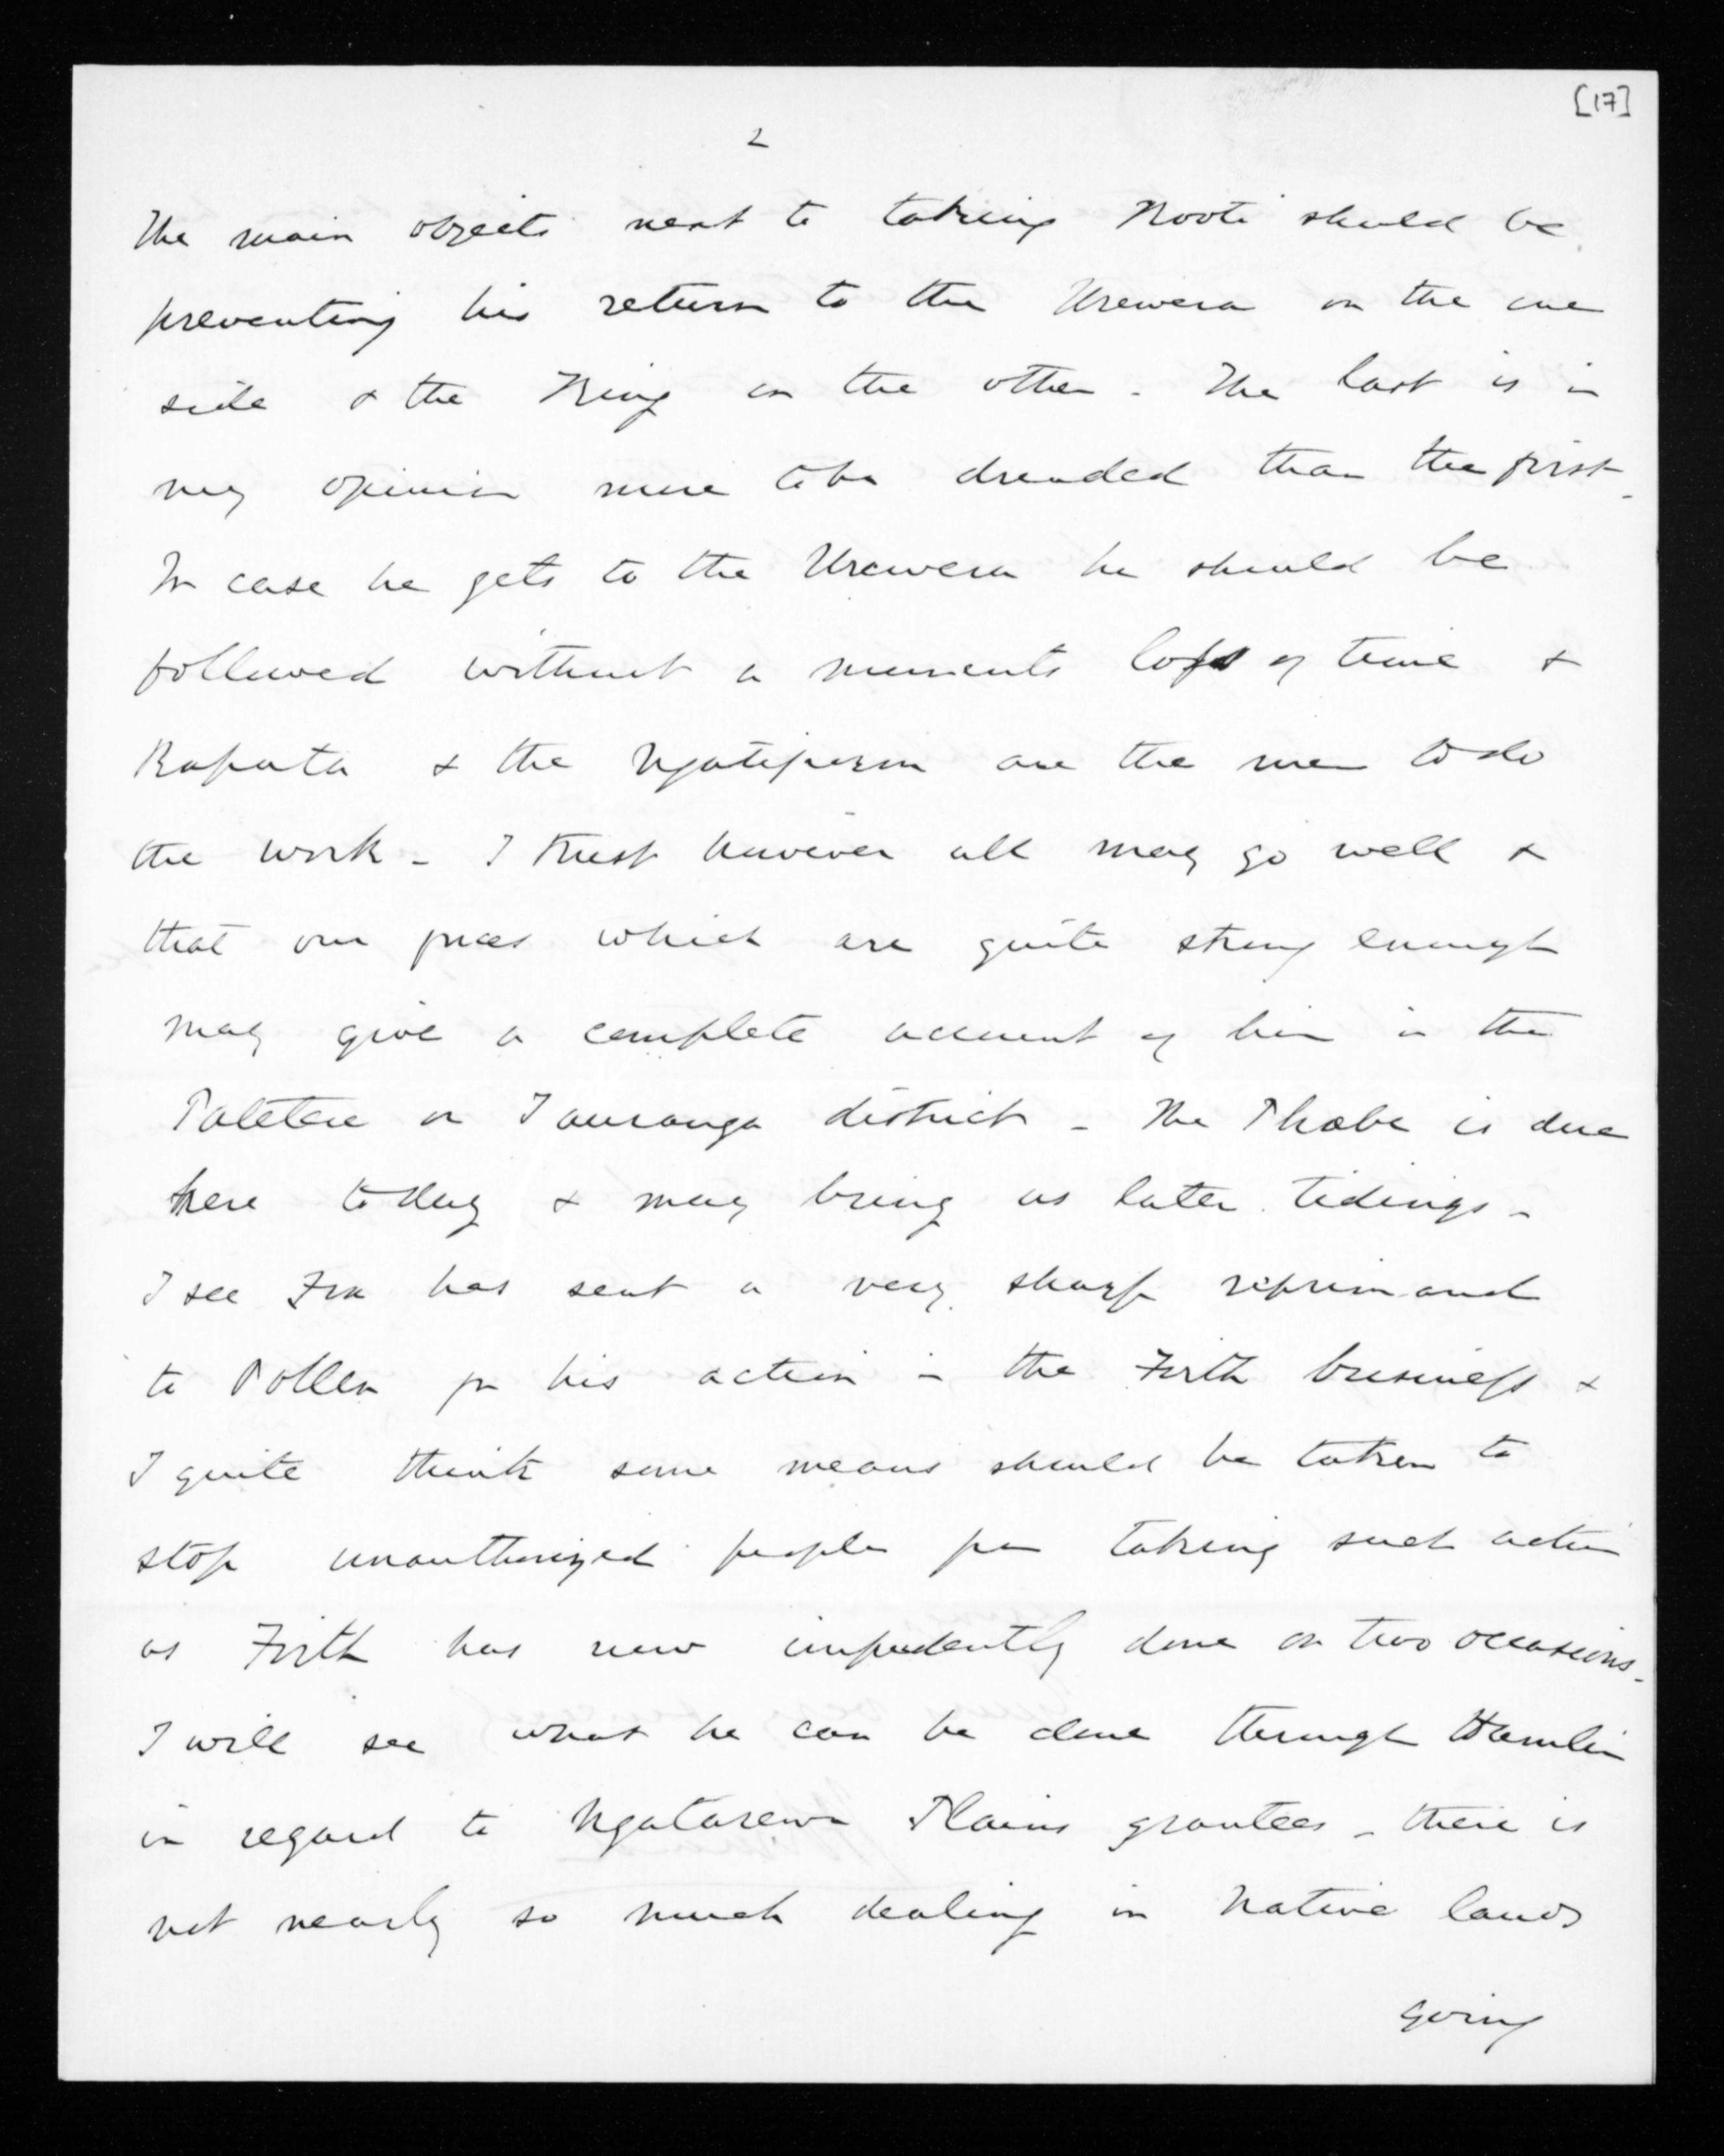 [17]
2
The main objects next to taking Kooti should be
preventing his return to the Urewera on the one
side & the King on the other - The last is in
my opinion more to be dreaded than the first -
In case he gets to the Urewera he should be
followed without a moments loss of time &
Ropata & the Ngatiporou are the men to do
the work - I trust however all may go well &
that our forces which are quite strong enough
may give a complete account of him in the
Patetere or Tauranga district - The Phœbe is due
here today & may bring us later tidings -
I see Fox has sent a very sharp reprimand
to Pollen for his action in the Firth business &
I quite think some means should be taken to
stop unauthorized people from taking such action
as Firth has now impudently done on two occasions -
I will see what he can be done through Hamlin
in regard to Ngatarewa Plains grantees - there is
not nearly so much dealing in Native lands
going